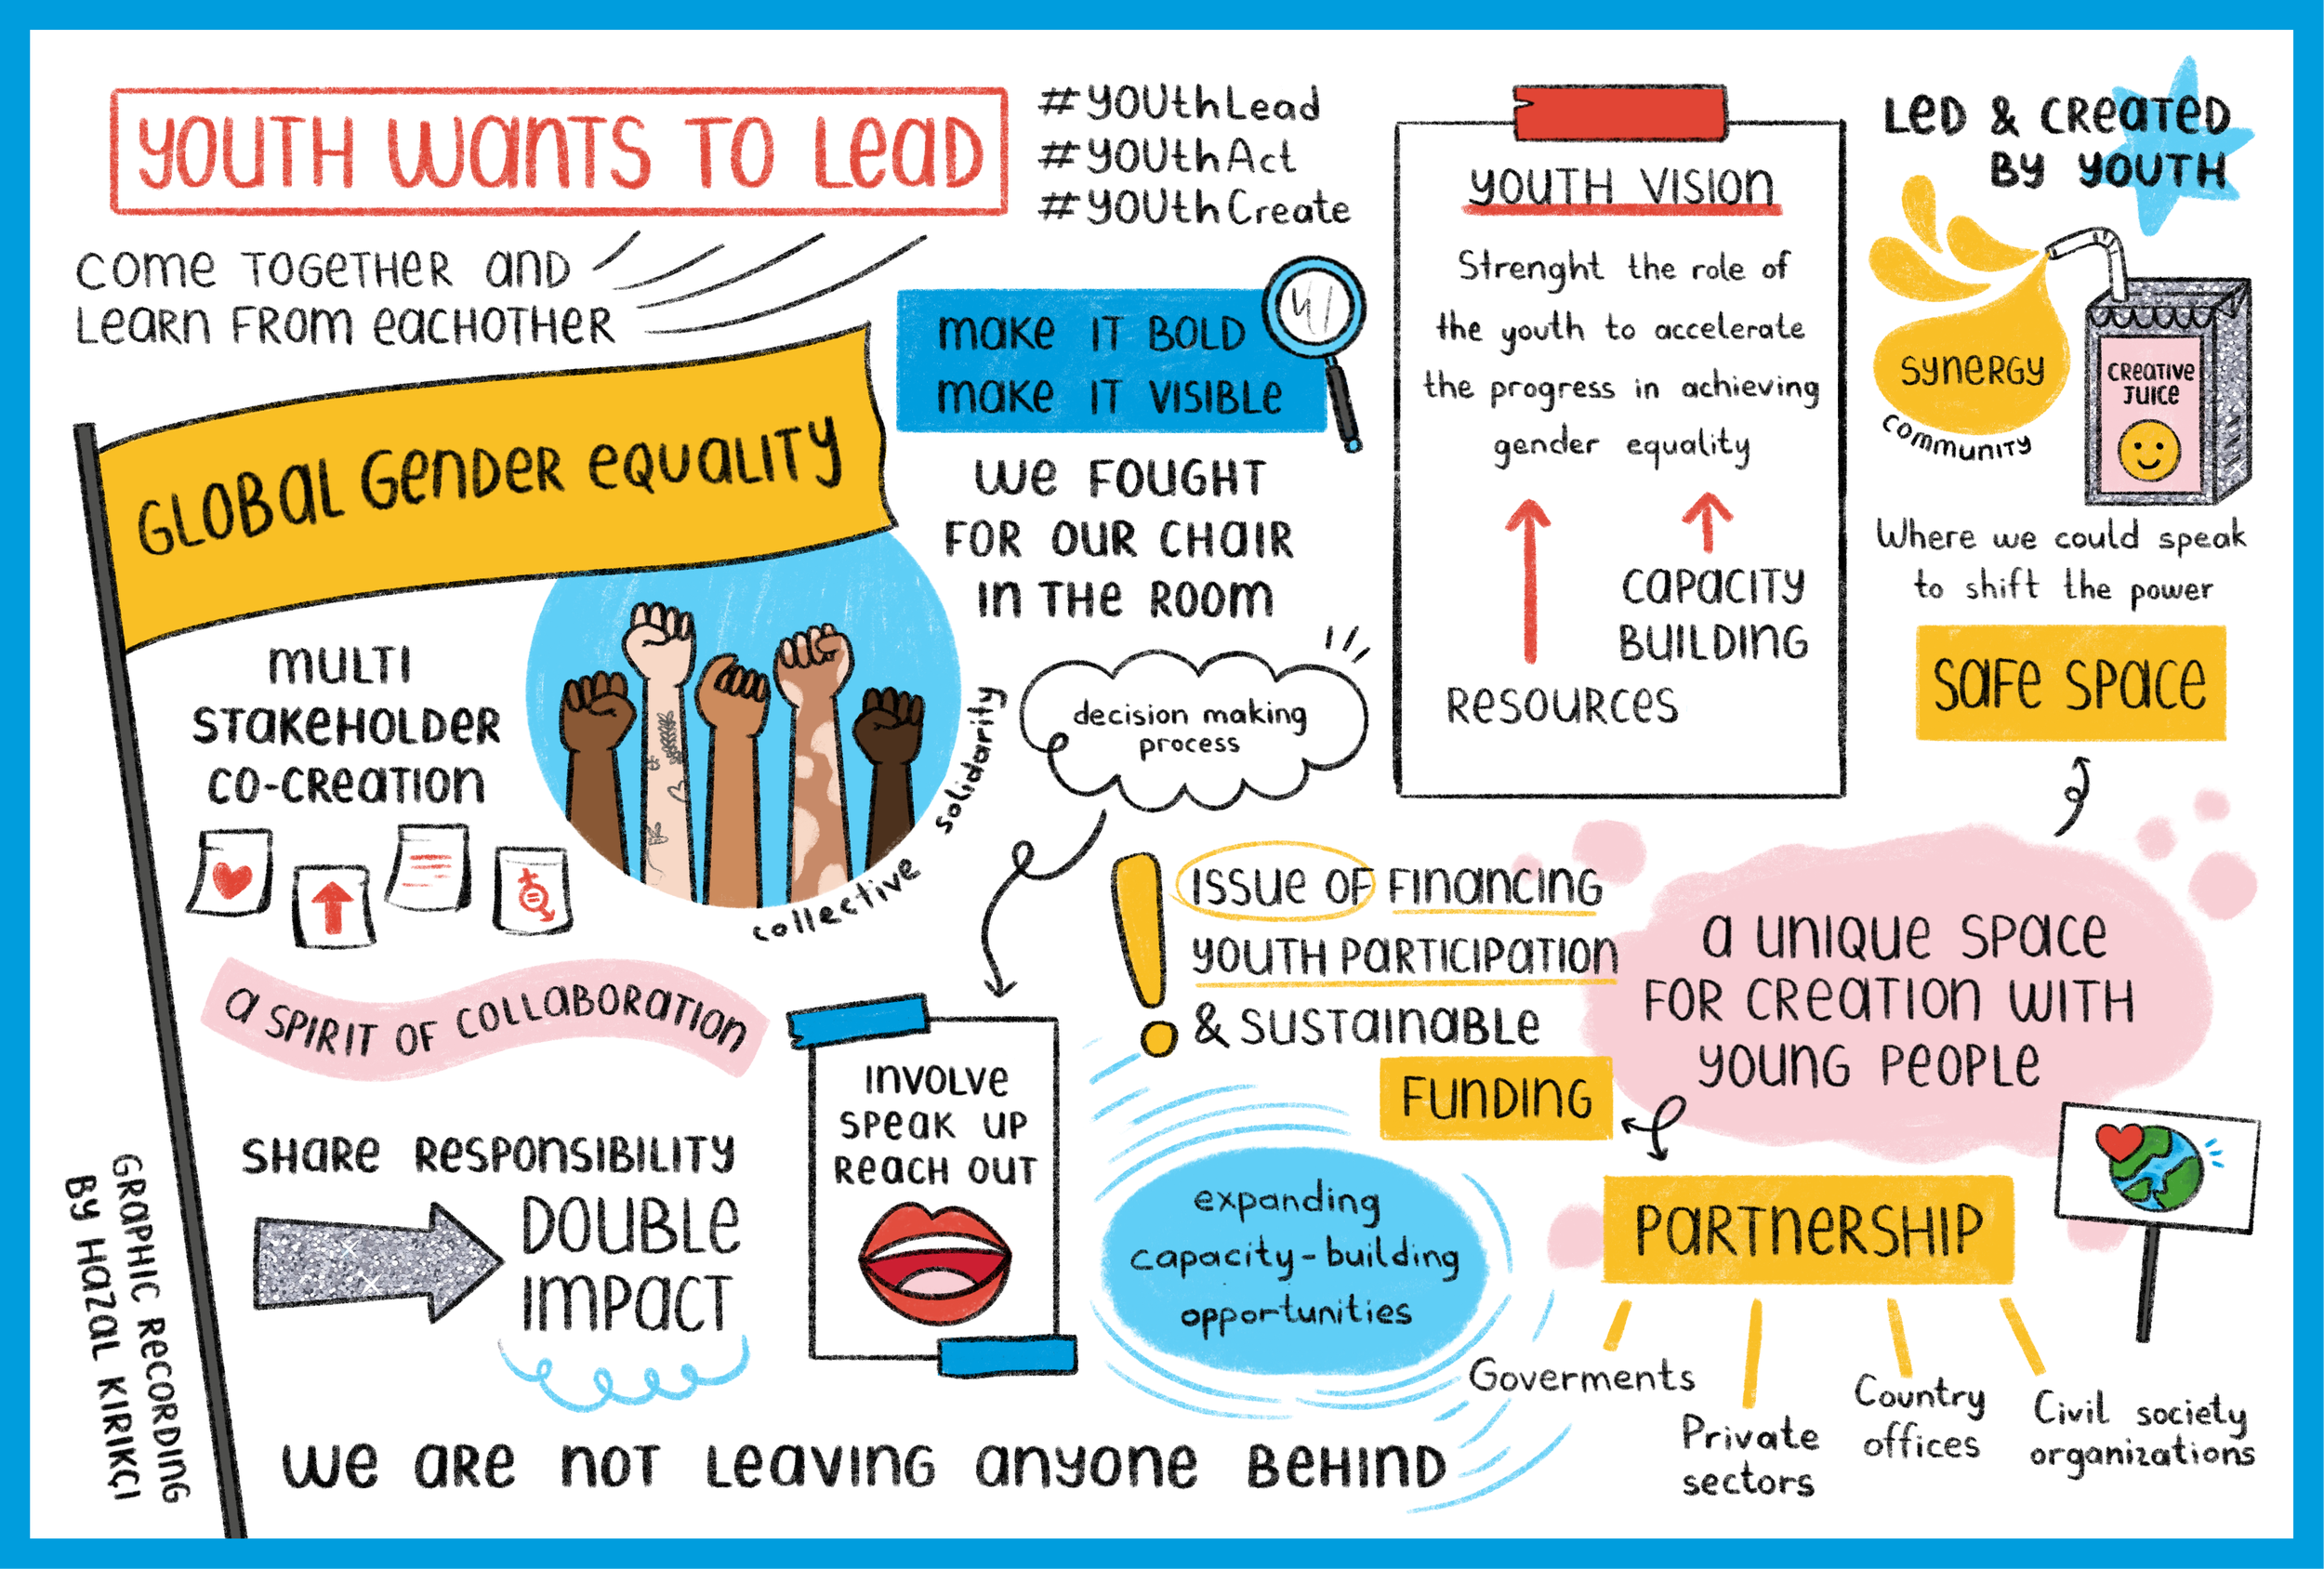 YOUTH WANTS TO LEAD
#YOUthLead
#YOUthAct
#YOUthCreate
COME TOGETHER AND
LEARN FROM EACHOTHER
GLOBAL GENDER EQUALITY
MAKE IT BOLD
MAKE IT VISIBLE
WE FOUGHT
FOR OUR CHAIR
IN THE ROOM
decision making
process
YOUTH VISION
Strenght the role of
the youth to accelerate
the progress in achieving
gender equality
CAPACITY
BUILDING
RESOURCES
LED & CREATED
BY YOUTH
SYNERGY
COMMUNITY
CREATIVE
JUICE
Where we could speak
to shift the power
SAFE SPACE
MULTI
STAKEHOLDER
CO-CREATION
collective solidarity
A SPIRIT OF COLLABORATION
SHARE RESPONSIBILITY
DOUBLE
IMPACT
INVOLVE
SPEAK UP
REACH OUT
ISSUE OF FINANCING
YOUTH PARTICIPATION
& SUSTAINABLE
FUNDING
A UNIQUE SPACE
FOR CREATION WITH
YOUNG PEOPLE
expanding
capacity-building
opportunities
PARTNERSHIP
Goverments
Private
sectors
Country
offices
Civil society
organizations
WE ARE NOT LEAVING ANYONE BEHIND
GRAPHIC RECORDING
BY HAZAL KIRIKÇI